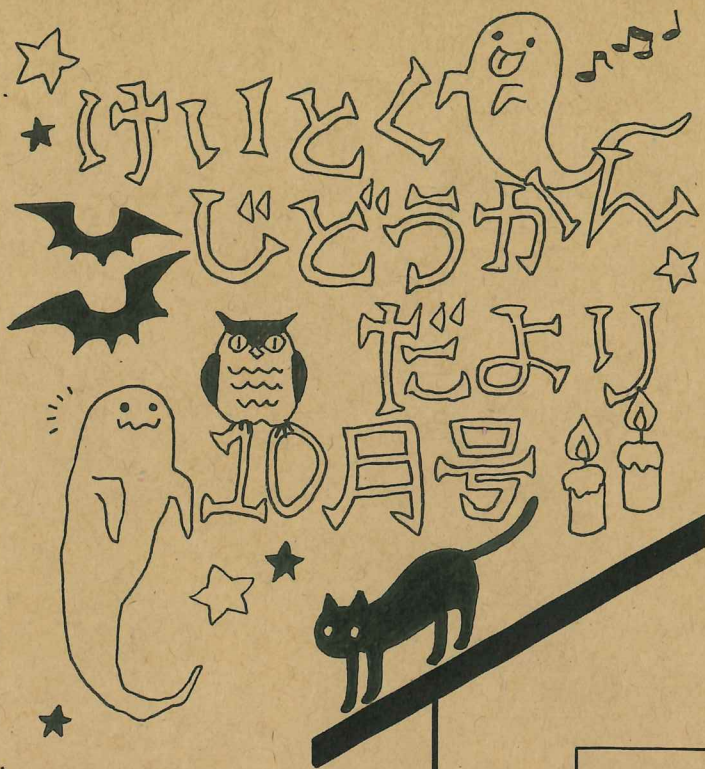 けいとく
じどうかん
だより
10月号